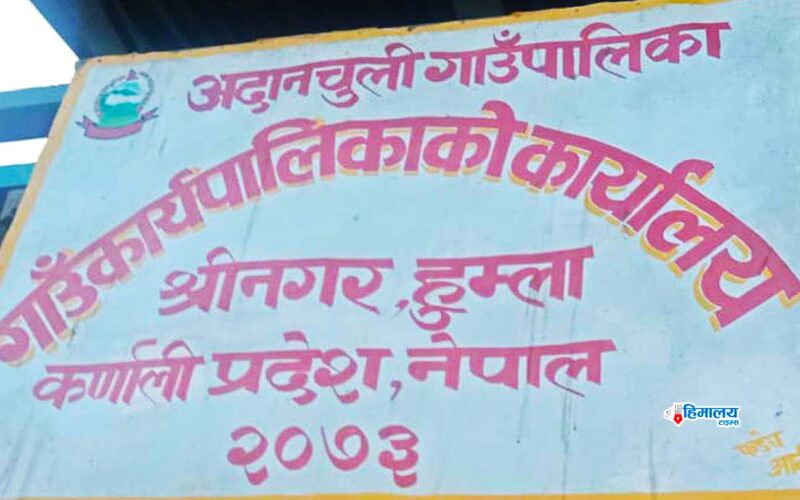 अदानचुली गाउँपालिका
गाउँकार्यपालिकाको कार्यालय
श्रीनगर, हुम्ला
कर्णाली प्रदेश, नेपाल
२०७३
हिमालय
टाइम्स